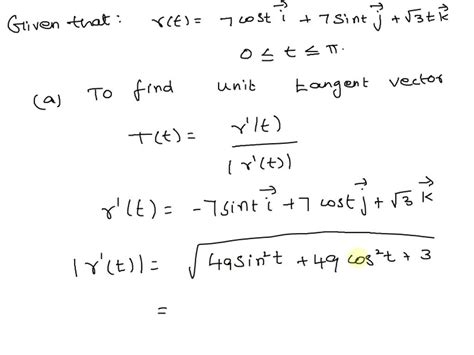 Given that: r(t) = 7 cost i→ + 7 sint j→ + √3 t k→
0 ≤ t ≤ π.
(a) To find unit tangent vector
T(t) = r'(t) / |r'(t)|
r'(t) = -7 sint i→ + 7 cost j→ + √3 k→
|r'(t)| = √(49 sin²t + 49 cos²t + 3)
=